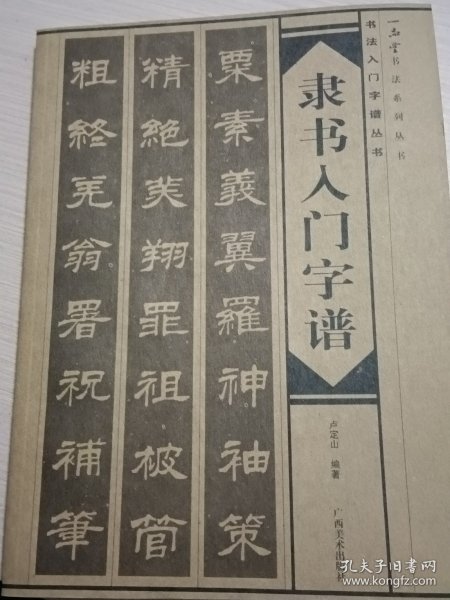 一品堂书法系列丛书
书法入门字谱丛书
隶书入门字谱
卢定山 编著
广西美术出版社
粟素義翼羅神袖策
精絶美翔罪祖被管
粗終羌翁署祝補筆
孔夫子旧书网
kongfz.com